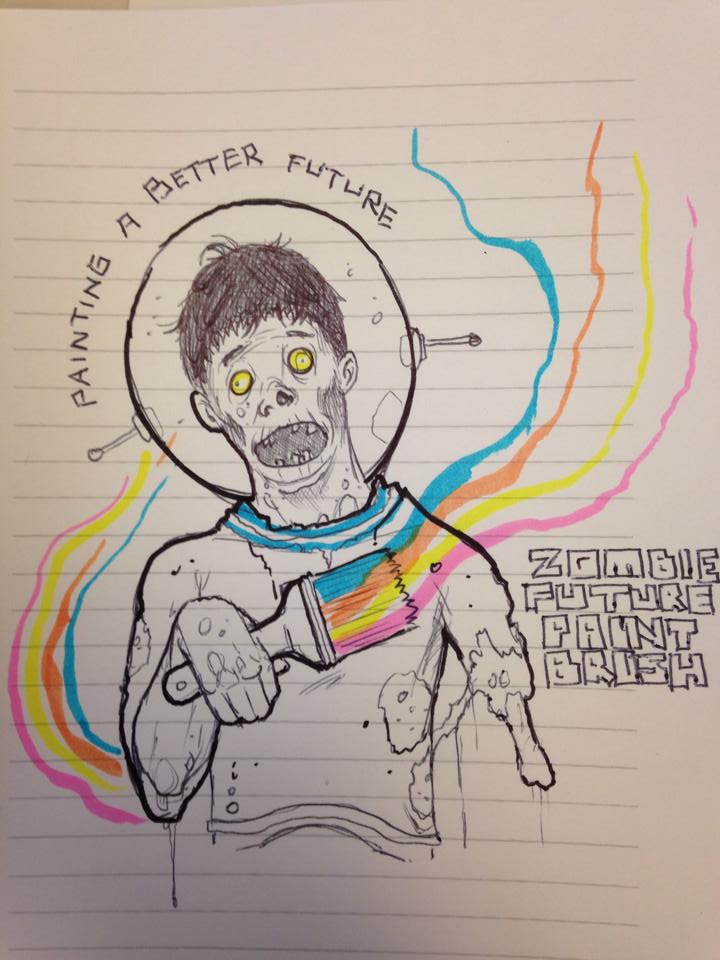 PAINTING A BETTER FUTURE
ZOMBIE
FUTURE
PAINT
BRUSH